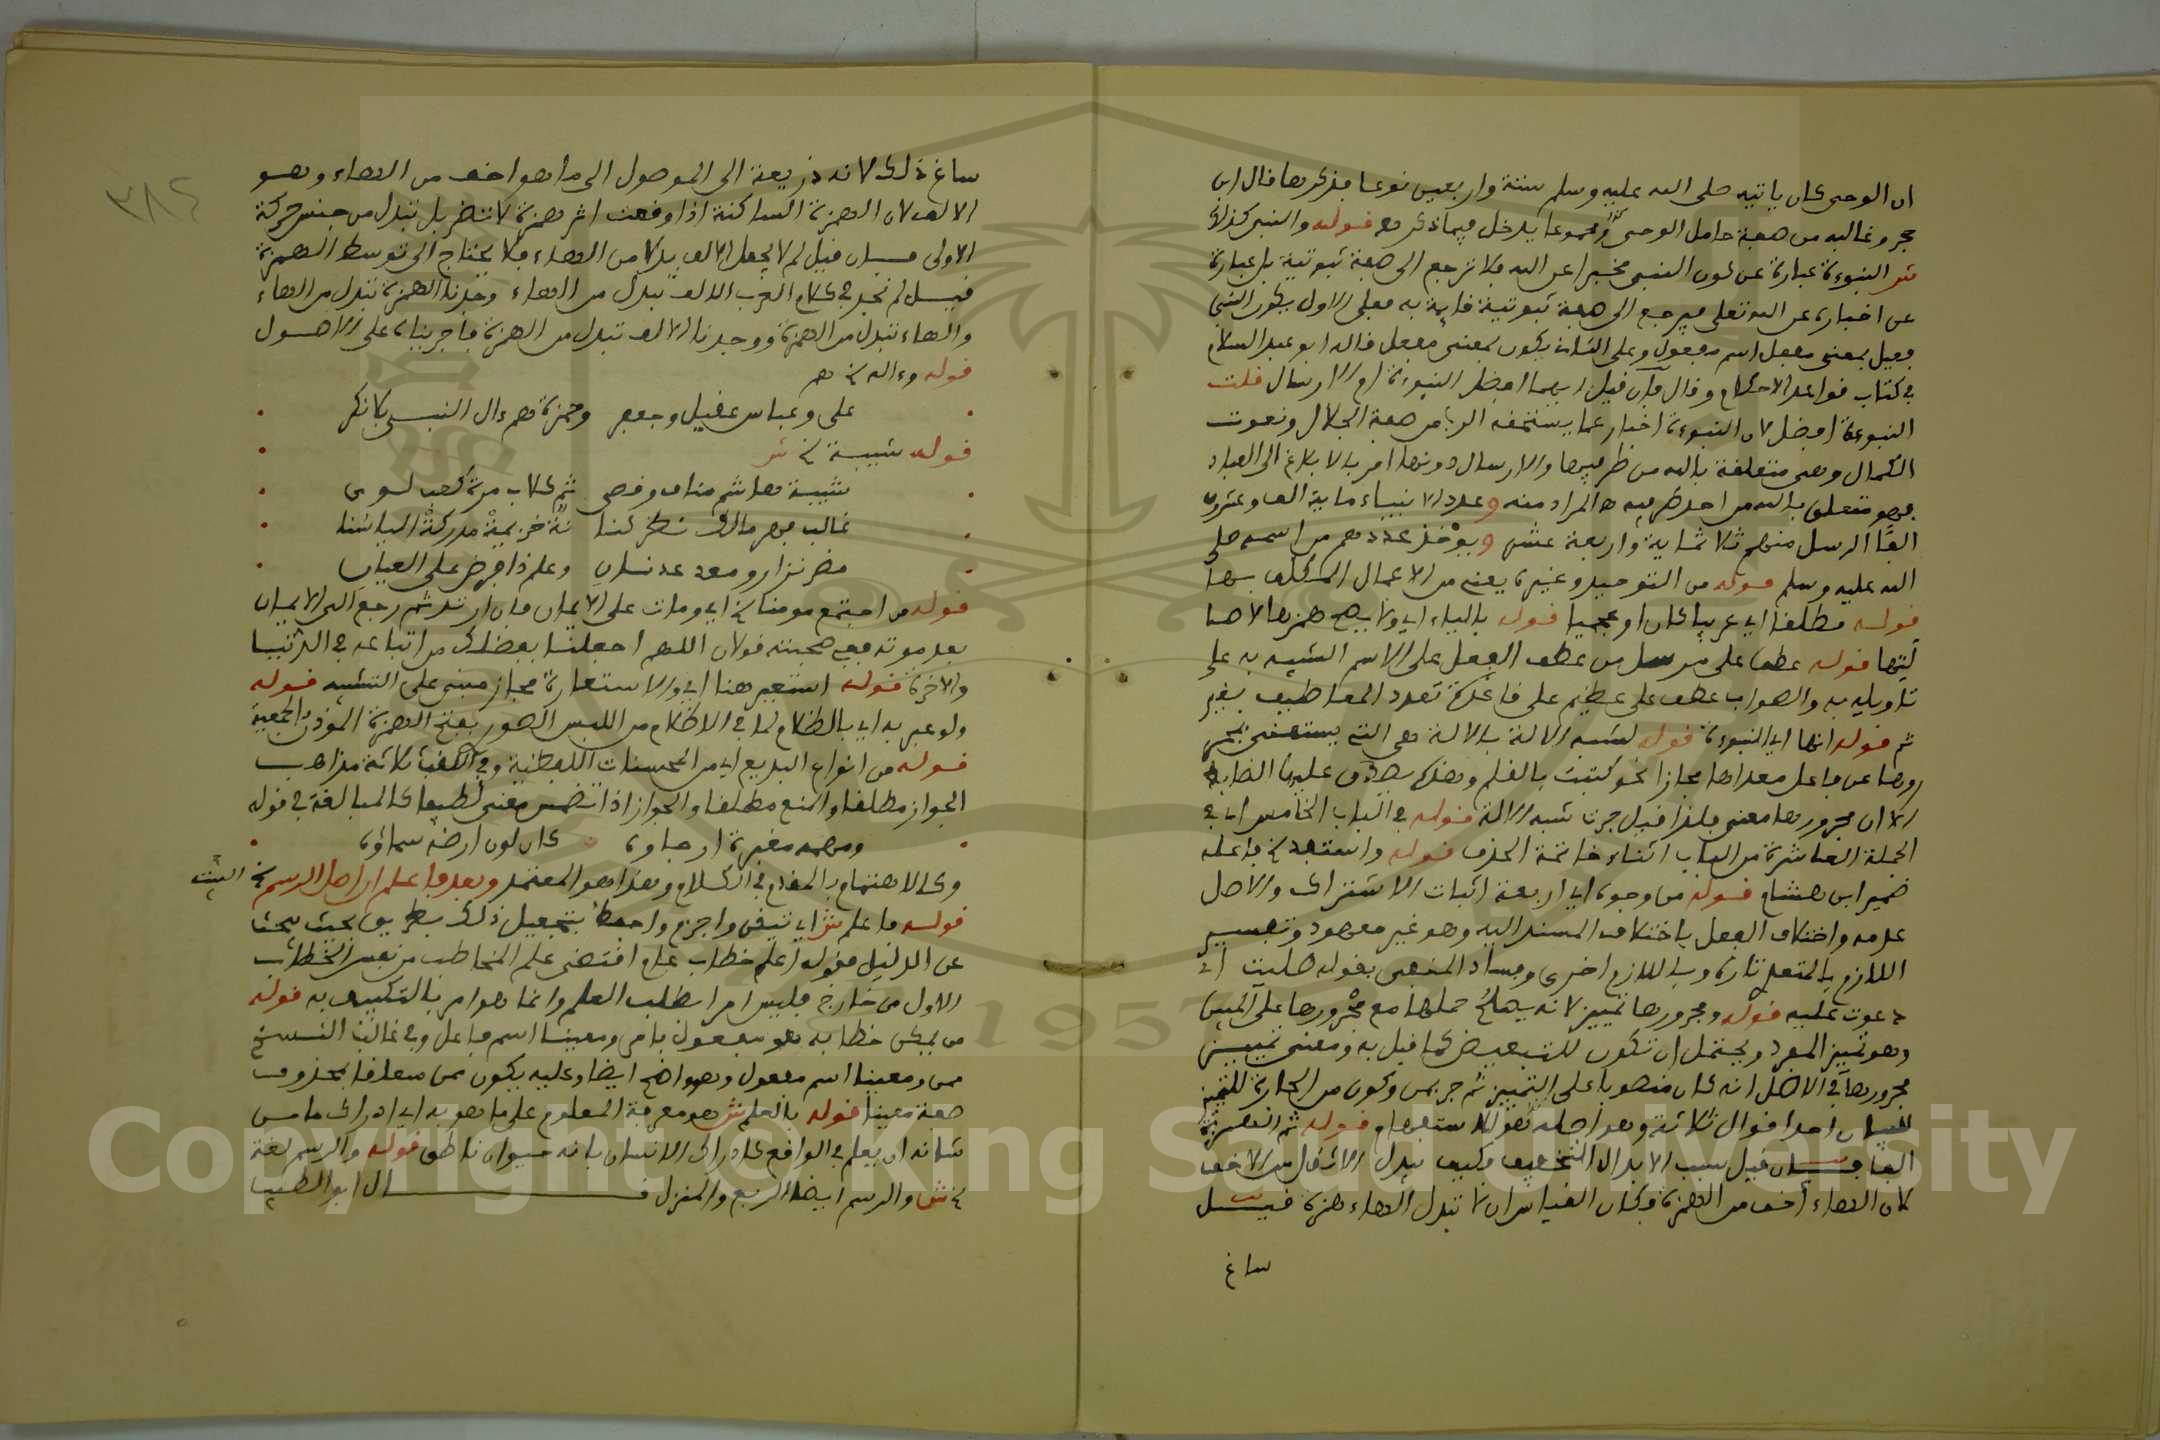 ان الوحى كان ياتيه صلى الله عليه وسلم ستة واربعين نوعا فذكرها قال ابن
حجر وغالبه من صفة حامل الوحى ومجموعها يدخل فيما ذكر مع قوله والنبى كذلك
شر النبوءة عبارة عن كون النبى مخبرا عن الله فلا ترجع الى صفة ثبوتية بل عبارة
عن اخباره عن الله تعلى فيرجع الى صفة ثبوتية قايمة به فعلى الاول يكون النبى
فعيل بمعنى مفعل اسم مفعول وعلى الثانى يكون بمعنى مفعل قاله ابو عبد السلام
فى كتاب قواعد الاحكام وقال فان قيل ايهما افضل النبوءة او الارسال قلت
النبوءة افضل لان النبوءة اخبار عما يستحقه الرب من صفة الجلال ونعوت
الكمال وهى متعلقة بالله من طرفيها والارسال دونها امر بالابلاغ الى العباد
فهو متعلق بالله من احد طرفيه ه المراد منه وعدد الانبياء ماية الف وعشرون
الفا الرسل منهم ثلاثماية واربعة عشر ويوخذ عددهم من اسمه صلى
الله عليه وسلم قوله من التوحيد وغيره يعنى من الاعمال المكلف بها
قوله مطلقا اى عربيا كان او عجميا قوله بالياء اى ولا يصح همزها لاصا
لتها قوله عطفا على مرسل من عطف الفعل على الاسم الشبيه به على
تاويله به والصواب عطف على عظيم على قاعدة تعدد المعاطيف بغير
ثم قوله انها اى النبوءة قوله لشبه الالة بالالة هى التى يستغنى بمجر
ورها عن فاعل معداها مجازا نحو كتبت بالقلم وهذه يصدق عليها الضابط
الا ان مجرورها معنى فلذا قيل جرت شبه الالة قوله فى الباب الخامس اى فى
الجملة العاشرة من الباب اثناء خاتمة الحذف قوله واستبعد فاعله
ضمير ابن هشام قوله من وجوه اى اربعة اثبات الاشتراك والاصل
عدمه واختلاف الفعل باختلاف المسند اليه وهو غير معهود وتفسير
اللازم بالمتعد تارة وباللازم اخرى وفساد المعنى بقوله صليت اى
دعوت عليه قوله ومجرورها تمييز لانه يصلح حملها مع مجرورها على المبين
وهو تمييز المفرد ويحتمل ان تكون للتبعيض كما قيل به ومعنى تمييز
مجرورها فى الاصل انه كان منصوبا على التمييز ثم جر بمن وكون من الجارة للتمييز
للبيان احد اقوال ثلاثة قوله ثم الهمزة
الفا فان قيل سبب الابدال التخفيف وكيف تبدل الاثقل من الاخف
لان الهاء اخف من الهمزة وكان القياس ان لا تبدل الهاء همزة قيل
ساغ
٣٨٤
ساغ ذلك لانه ذريعة الى الموصول الى ما هو اخف من الهاء وهو
الالف لان الهمزة الساكنة اذا وقعت اثر همزة لا تقر بل تبدل من جنس حركة
الاولى فان قيل لم لا يجعل الالف بدلا من الهاء فلا يحتاج الى توسط الهمزة
قيل لم نجد فى كلام العرب الالف تبدل من الهاء وجدنا الهمزة تبدل من الهاء
والهاء تبدل من الهمزة ووجدنا الالف تبدل من الهمزة فاجريناه على الاصول
قوله وءاله هم
على وعباس عقيل وجعفر وحمزة هم ءال النبى بلا نكر
قوله شيبة شر
شيبة هاشم مناف وقصى ثم كلاب مرة كعب لوى
غالب فهر مالك نضر كنا نة خزيمة مدركة الياسنا
مضر نزار ومعد عدنان وعلم ذا فرض على العيان
قوله من اجتمع مومنا اى ومات على الايمان فان ارتد ثم رجع الى الايمان
بعد موته ففى صحبته قولان اللهم اجعلنا بفضلك من اتباعه فى الدنيا
والاخرة قوله استعير هنا اى والاستعارة مجاز مبنى على التشبيه قوله
ولو عبر به اى بالظلام لما فى الاظلام من اللبس الصور بفتح الهمزة المؤذن بالجمعية
قوله من انواع البديع اى من المحسنات اللفظية وفى القلب ثلاثة مذاهب
الجواز مطلقا والمنع مطلقا والجواز اذا تضمن معنى لطيفا كالمبالغة فى قوله
ومهمه مغبرة ارجاؤه كان لون ارضه سماؤه
وكالاهتمام بالمقدم فى الكلام وهذا هو المعتمد وبعد فاعلم ان اصل الرسم البيت
قوله فاعلم ش اى تيقن واجزم واحفظ بتحصيل ذلك بطريق بحيث بحثا
عن الدليل فقوله اعلم خطاب عام اقتضى علم المخاطب من نفس الخطاب
الاول من خارج فليس امرا بطلب العلم وانما هو امر بالتكييف به قوله
من يمكن خطابه هو مفعول بامر ومعينا اسم فاعل وفى غالب النسخ
ممن ومعينا اسم مفعول وهو واضح ايضا وعليه يكون ممن متعلقا بمحذوف
صفة معينا قوله بالعلم ش هو معرفة المعلوم على ما هو به اى ادراك ما من
شانه ان يعلم فى الواقع كادراك الانسان بانه حيوان ناطق قوله والرسم لغة
ش والرسم ايضا الربع والمنزل قال ابو الطيب
Copyright © King Saud University
1957